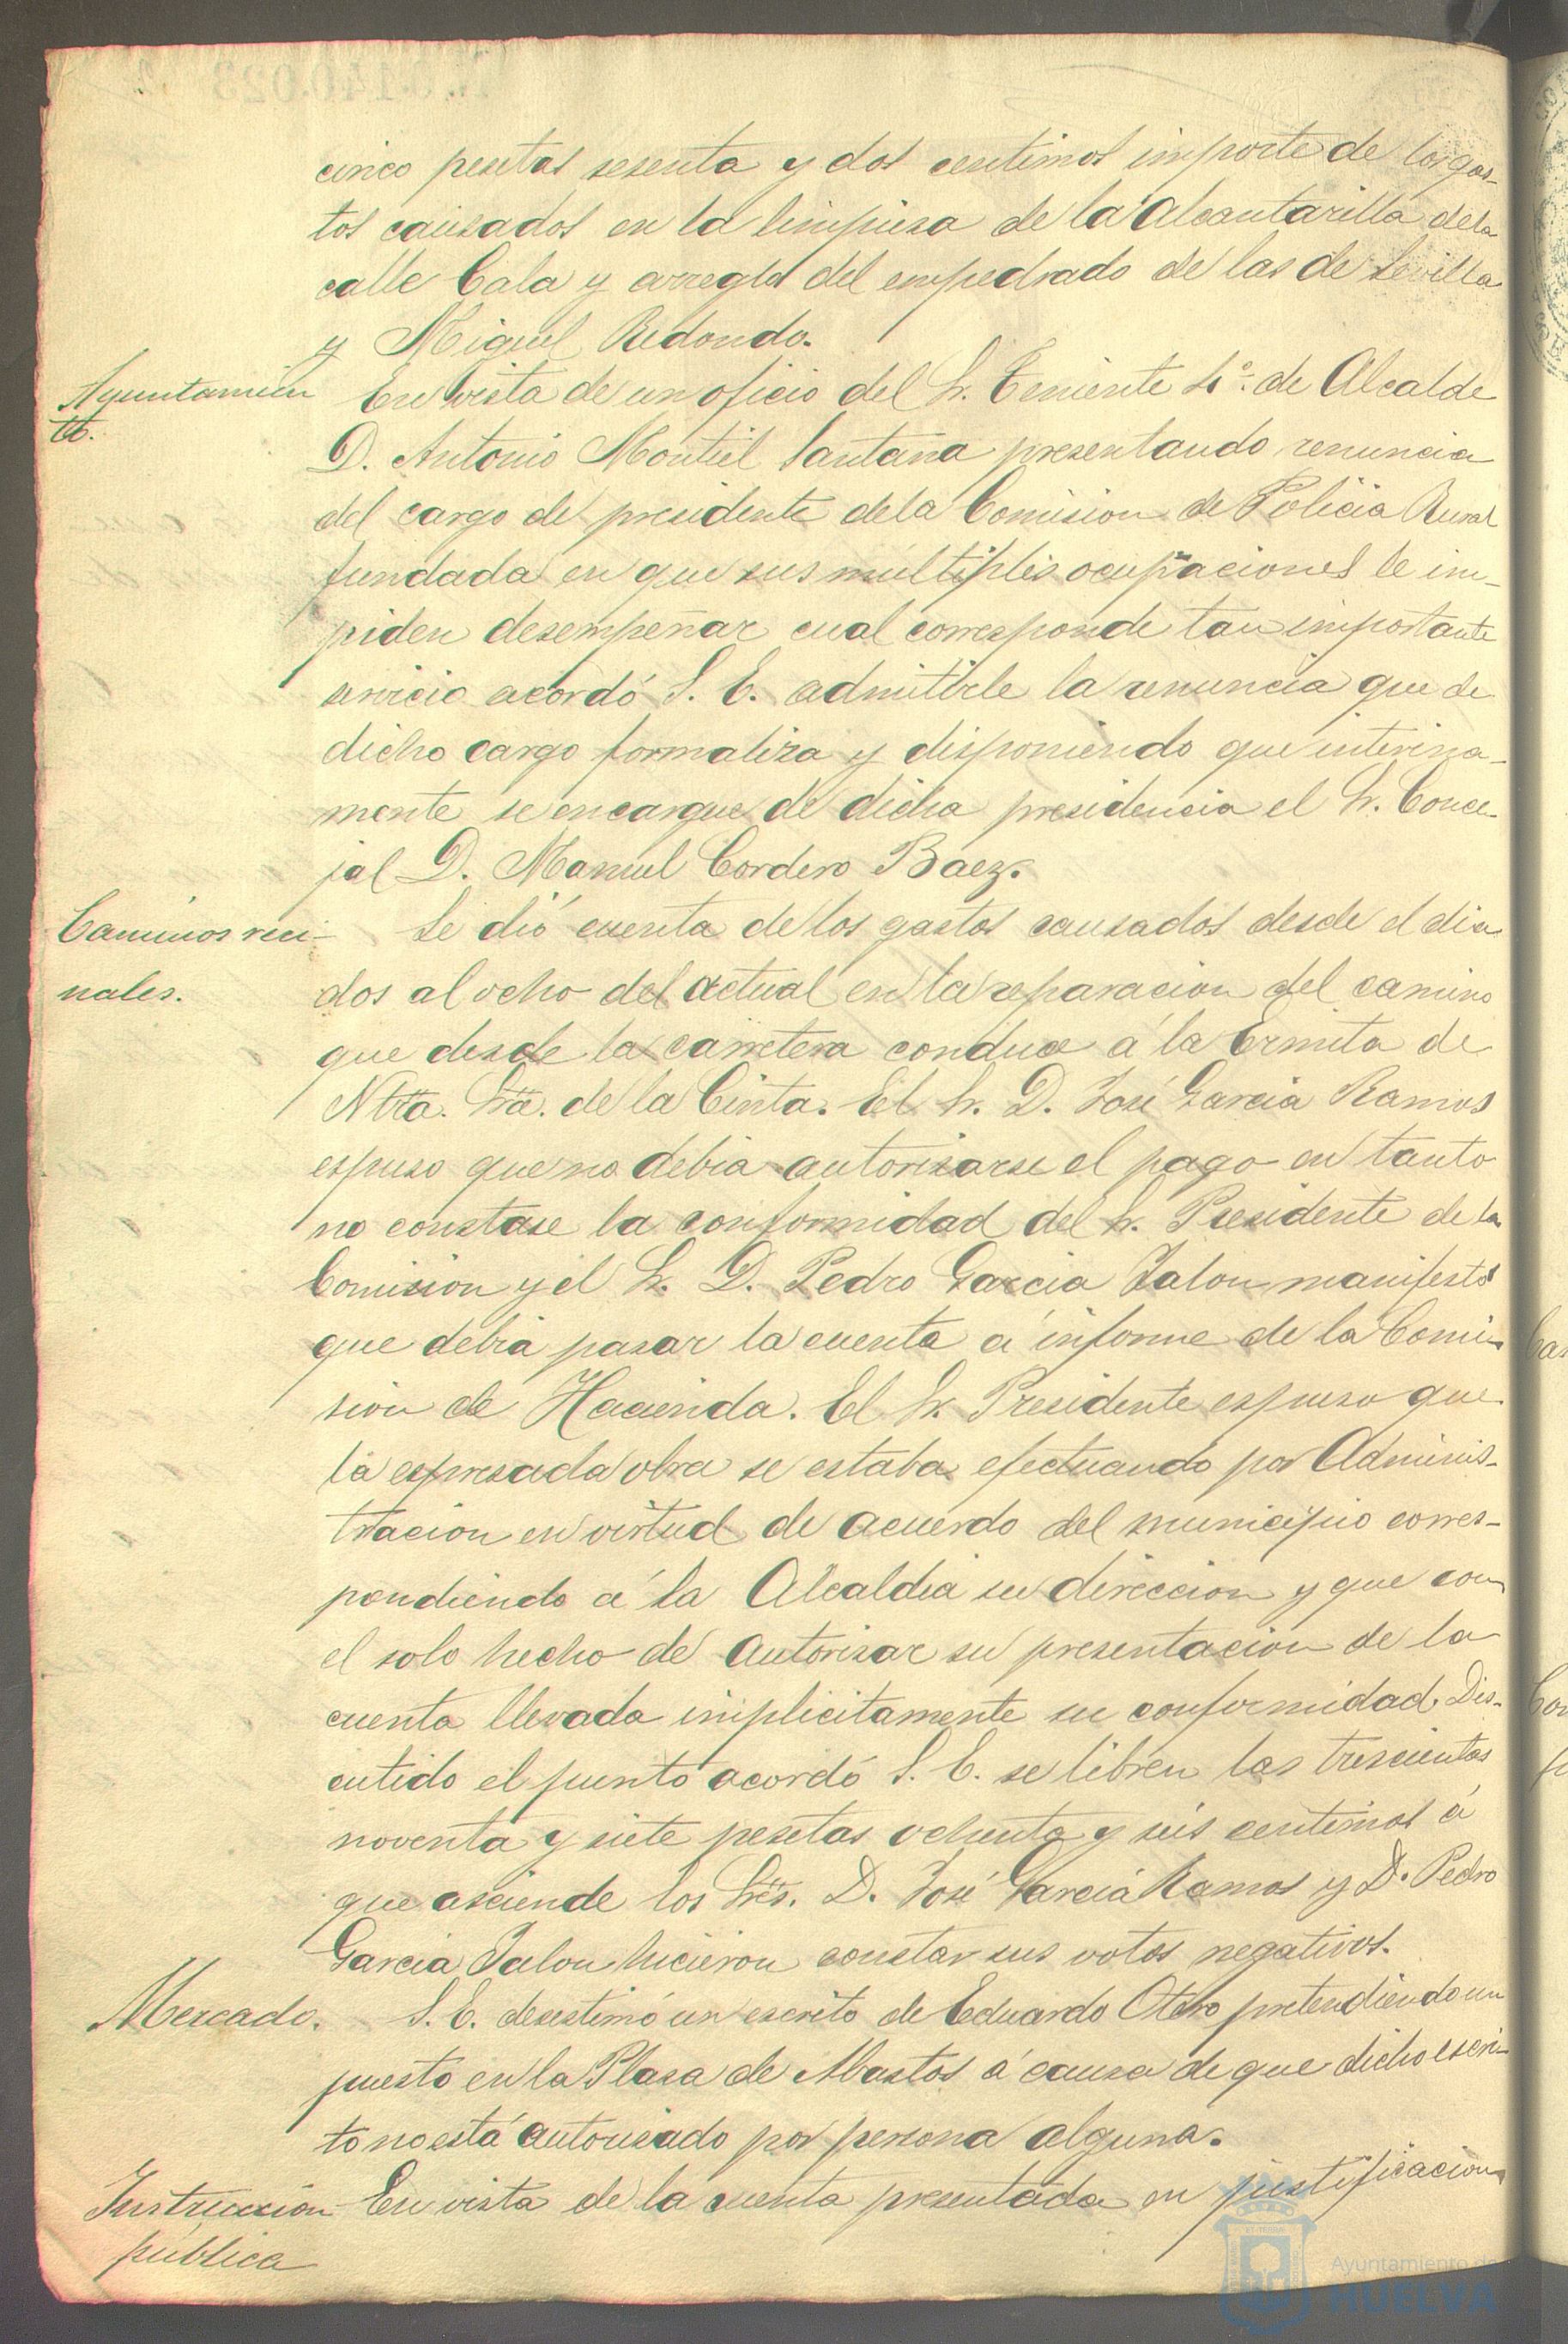 cinco pesetas sesenta y dos centimos importe de los gas-
tos causados en la limpiesa de la Alcantarilla de la
calle Cala y arreglo del empedrado de las de Sevilla
y Miguel Redondo.
Ayuntamien
to.
En vista de un oficio del Sr. Teniente 4º. de Alcalde
D. Antonio Montiel Santana presentando renuncia
del cargo de presidente de la Comision de Policia Rural
fundada en que sus múltiples ocupaciones le im-
piden desempeñar cual corresponde tan importante
servicio acordó S. E. admitirle la renuncia que de
dicho cargo formaliza y disponiendo que interina-
mente se encargue de dicha presidencia el Sr. Conce-
jal D. Manuel Cordero Baez.
Caminos veci-
nales.
Se dió cuenta de los gastos causados desde el dia
dos al ocho del actual en la reparacion del camino
que desde la carretera conduce á la Ermita de
Ntra. Sra. de la Cinta. El Sr. D. José Garcia Ramos
espuso que no debia autorisarse el pago en tanto
no constase la conformidad del Sr. Presidente de la
Comision y el Sr. D. Pedro Garcia Jalon manifestó
que debia pasar la cuenta á informe de la Comi-
sion de Hacienda. El Sr. Presidente espuso que
la espresada obra se estaba efectuando por Adminis-
tracion en virtud de acuerdo del municipio corres-
pondiendo á la Alcaldia su direccion y que con
el solo hecho de autorisar su presentacion de la
cuenta llevada implicitamente su conformidad. Dis-
cutido el punto acordó S. E. se libren las trescientas
noventa y siete pesetas ochenta y seis centimos á
que asciende los Sres. D. José Garcia Ramos y D. Pedro
Garcia Jalon hicieron constar sus votos negativos.
Mercado.
S. E. desestimó un escrito de Eduardo Otero pretendiendo un
puesto en la Plasa de Abastos á causa de que dicho escri-
to no está autorisado por persona alguna.
Instruccion
pública
En vista de la cuenta presentada en justificacion
Ayuntamiento de
HUELVA